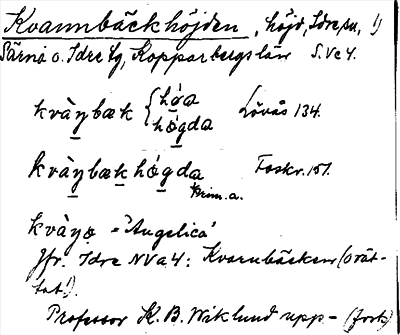 Kvannbäckhöjden, höjd, Idre sn, !)
Särna o. Idre tg, Kopparbergs län S. Ve 4.
kvàŋbæk { hǫ́a
hǫ́gda Lövås 134.
kvàŋbækhǫ́gda Foskr. 151.
Prim. a.
kvàŋo = 'Angelica'
Jfr. Idre NV a 4: Kvarnbäcken (orät-
tat!).
Professor K. B. Wiklund upp- (forts)